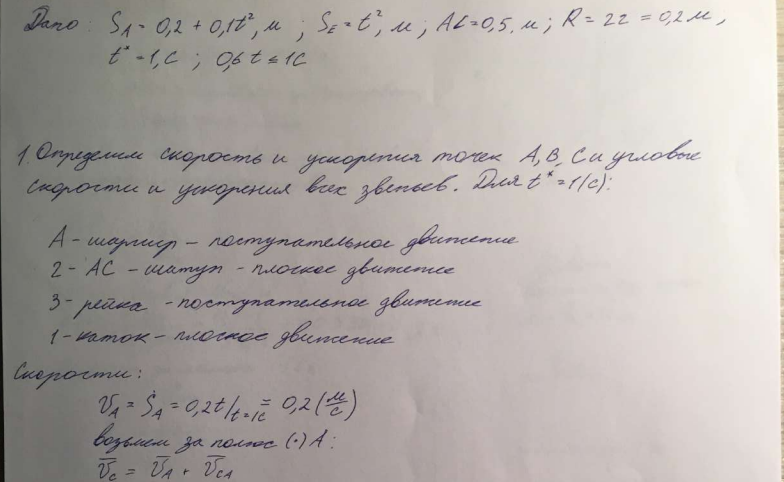 Дано: S_A = 0,2 + 0,1t², м ; S_E = t², м ; AC = 0,5, м ; R = 2r = 0,2 м,
t* = 1, c ; 0,6 t ≤ 1c
1. Определим скорость и ускорения точек A, B, C и угловые
скорости и ускорения всех звеньев. Для t* = 1(c):
A - шарнир - поступательное движение
2 - AC - шатун - плоское движение
3 - рейка - поступательное движение
1 - каток - плоское движение
Скорости:
V_A = Ṡ_A = 0,2t/t=1c = 0,2 (м/c)
возьмем за полюс (·) A:
V̄_C = V̄_A + V̄_CA